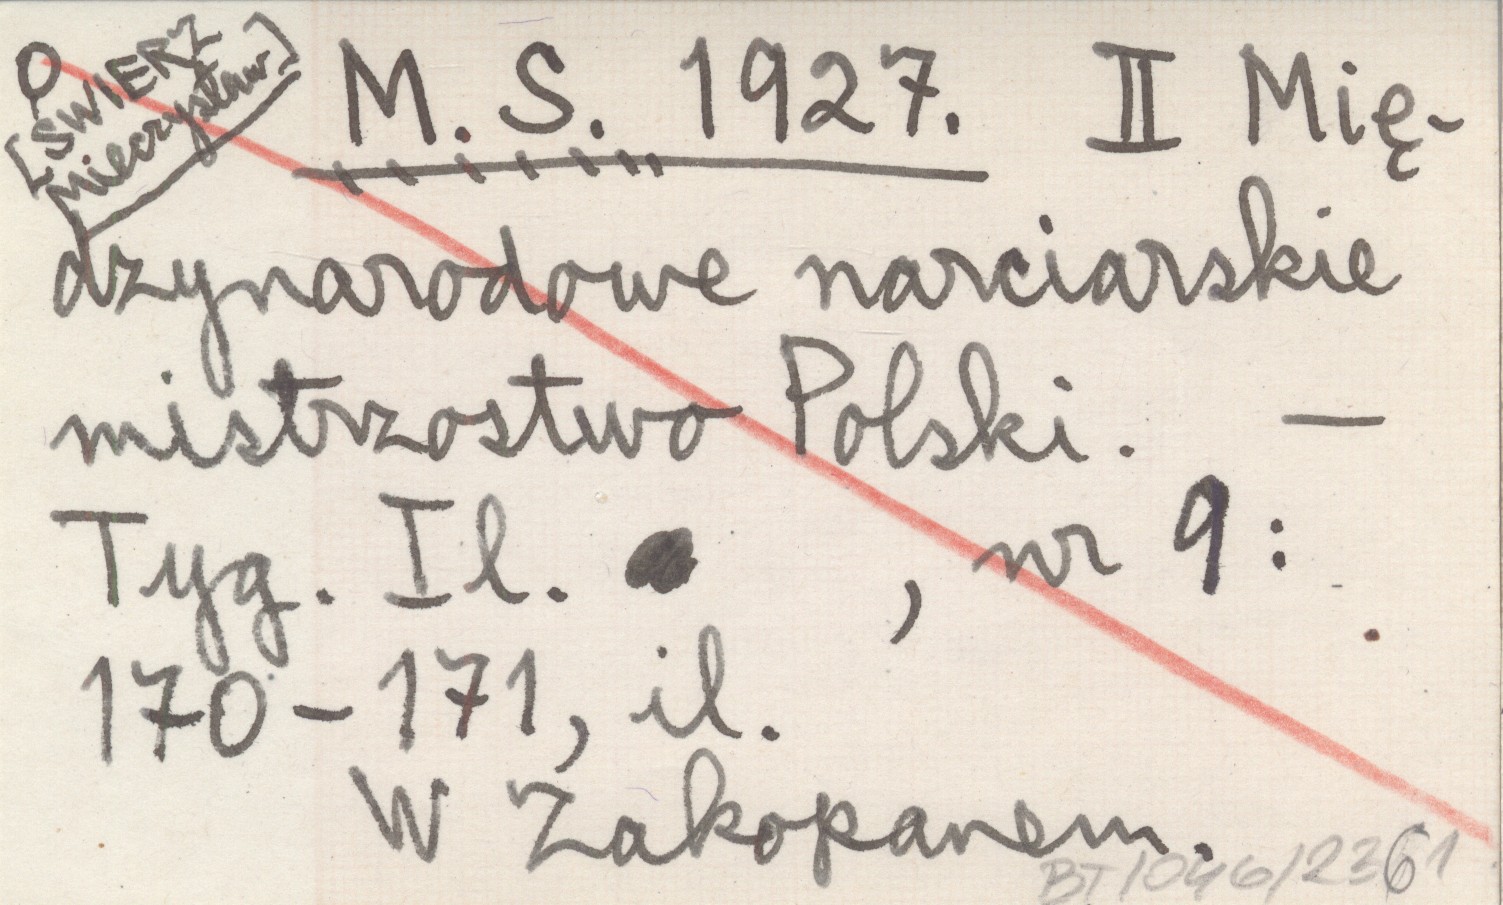 [SWIERZ
Mieczysław]
M. S. 1927. II Mię-
dzynarodowe narciarskie
mistrzostwo Polski. —
Tyg. Il. , nr 9:
170-171, il.
W Zakopanem.
BT/046/2361